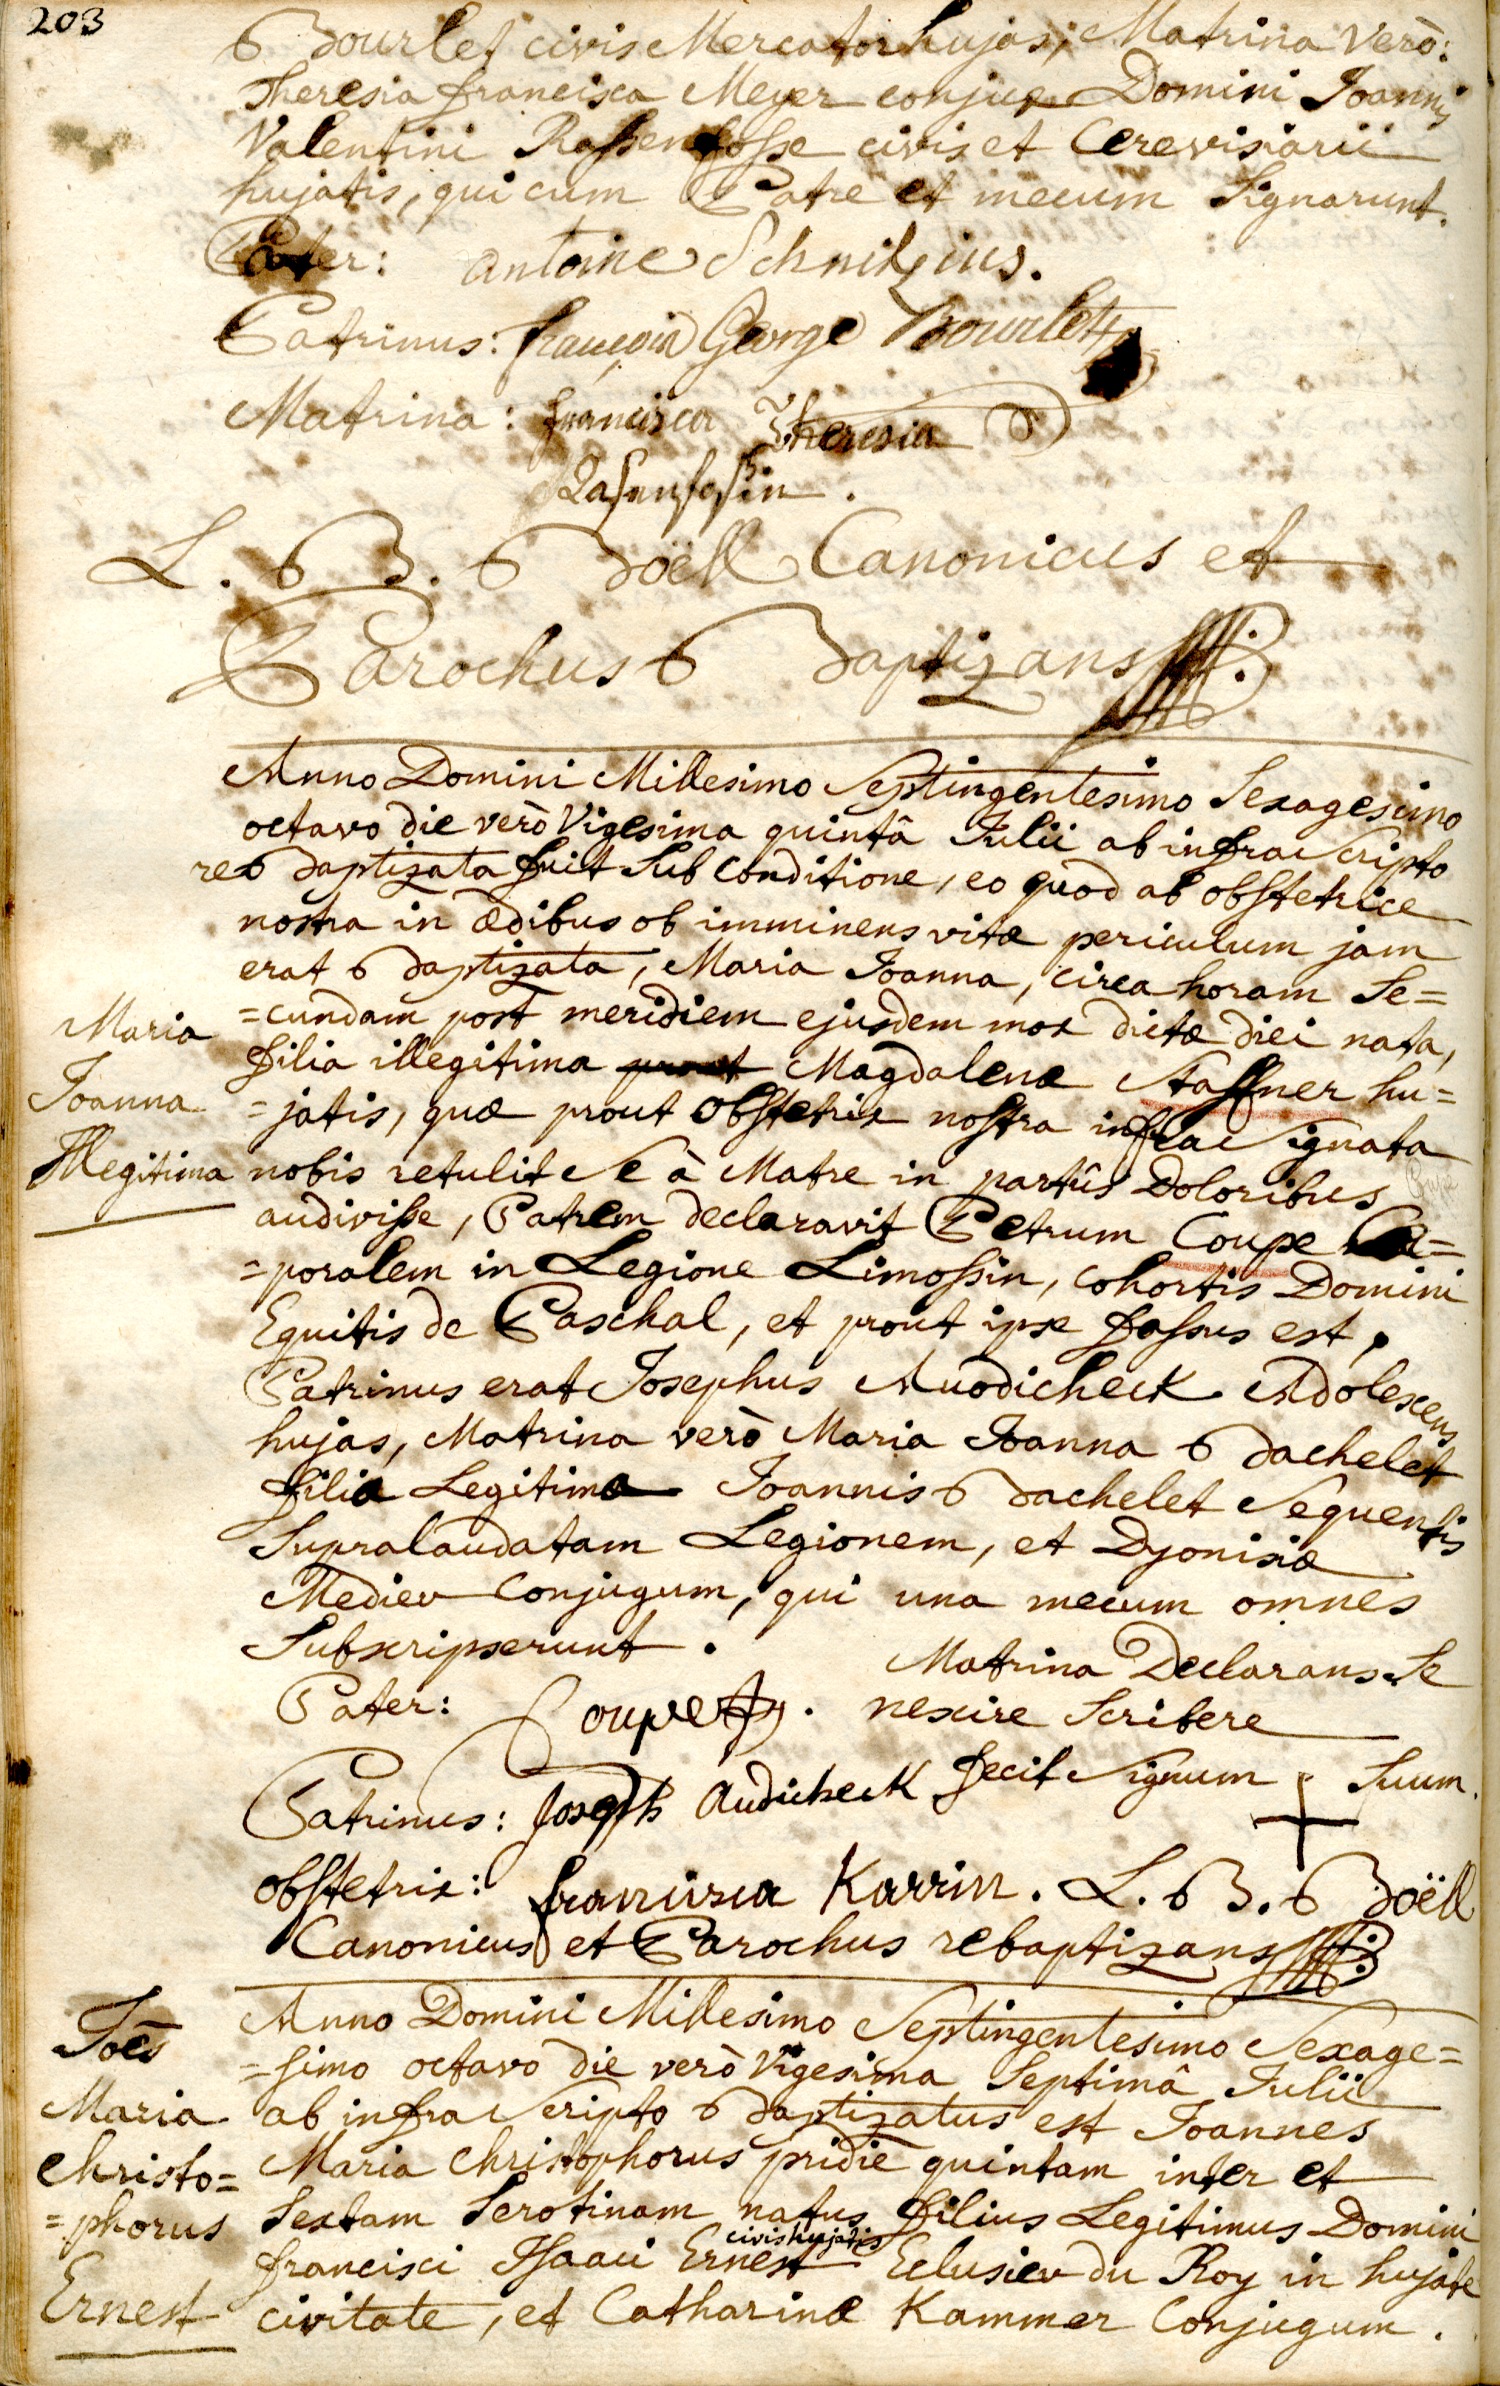 203
Bourlet civis Mercator hujas, Matrina Verò:
Theresia Francisca Meyer conjux Domini Joannis
Valentini Rassenfosse civis et Cerevisiarii
hujatis, qui cum Patre et mecum Signarunt.
Pater: Antoine Schnitzius.
Patrinus: françois George Bourlet
Matrina: francisca Theresia
Rasenfosin.
L. B. Boëll Canonicus et
Parochus Baptizans
Anno Domini Millesimo Septingentesimo Sexagesimo
octavo die verò Vigesima quintâ Julii ab infra Scripto
rebaptizata fuit Sub Conditione, eo quod ab obstetrice
nostra in ædibus ob imminens vitæ periculum jam
erat baptizata, Maria Joanna, circa horam Se=
=cundam post meridiem ejusdem mox dictæ diei nata,
Maria
Joanna
Illegitima
filia illegitima prout Magdalenæ Staffner hu=
=jatis, quæ prout Obstetrix nostra infra Signata
nobis retulit Se à Matre in partûs Doloribus
audivisse, Patrem declaravit Petrum Coupe Ca=
=poralem in Legione Limossin, cohortis Domini
Equitis de Paschal, et prout ipse fassus est,
Patrinus erat Josephus Auodicheck Adolescens
hujas, Matrina verò Maria Joanna Bachelet
filia Legitima Joannis Bachelet Sequentis
Supralaudatam Legionem, et Dyonisiæ
Mediev Conjugum, qui una mecum omnes
Subscripserunt.
Matrina Declarans Se
Pater: Coupe. nescire Scribere
fecit Signum + Suum.
Patrinus: Joseph Audicheck
obstetrix: francisca Karrin. L. B. Boëll
Canonicus et Parochus rebaptizans
Joēs
Maria
Christo=
=phorus
Ernest
Anno Domini Millesimo Septingentesimo Sexage=
=simo octavo die verò Vigesima Septimâ Julii
ab infra Scripto baptizatus est Joannes
Maria Christophorus pridie quintam inter et
Sextam Serotinam natus filius Legitimus Domini
civis hujatis
francisci Isaaci Ernest Eclusiev du Roy in hujate
civitate, et Catharinæ Kammer Conjugum.